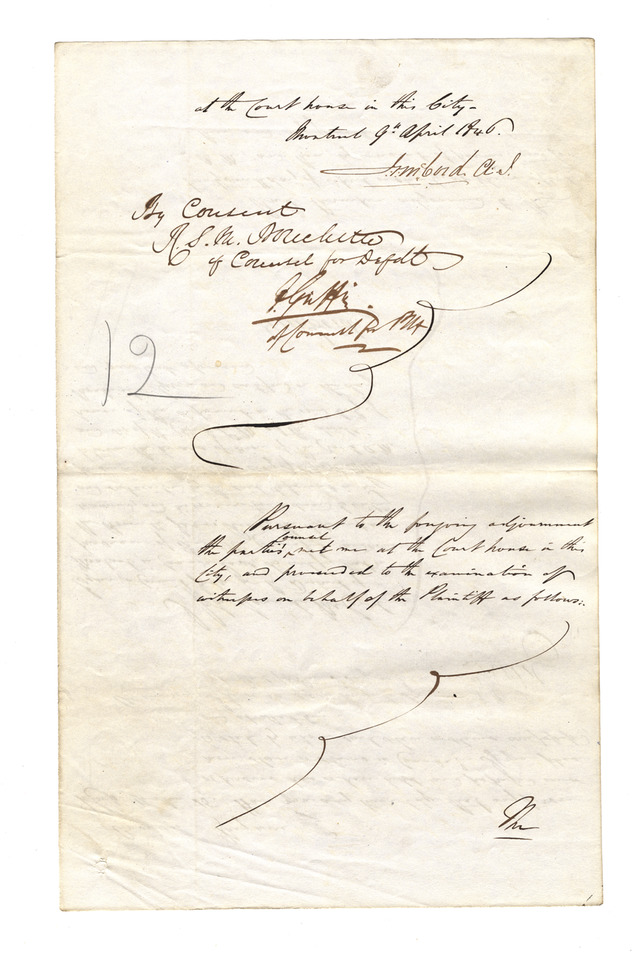 at the Court house in this City -
Montreal 9th April 1846.
By Consent
R. S. M. Bouchette
of Counsel for Defdt
F. Griffin
of Counsel for Pltf
12
Pursuant to the foregoing adjournment
Counsel
the parties, met me at the Court house in this
City, and proceeded to the examination of
witnesses on behalf of the Plaintiff as follows:.
The